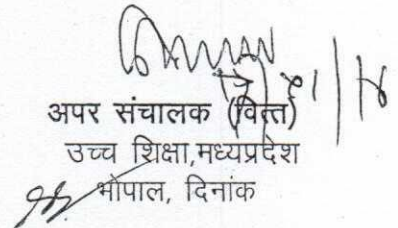 अपर संचालक (वित्त)
उच्च शिक्षा,मध्यप्रदेश
भोपाल, दिनांक